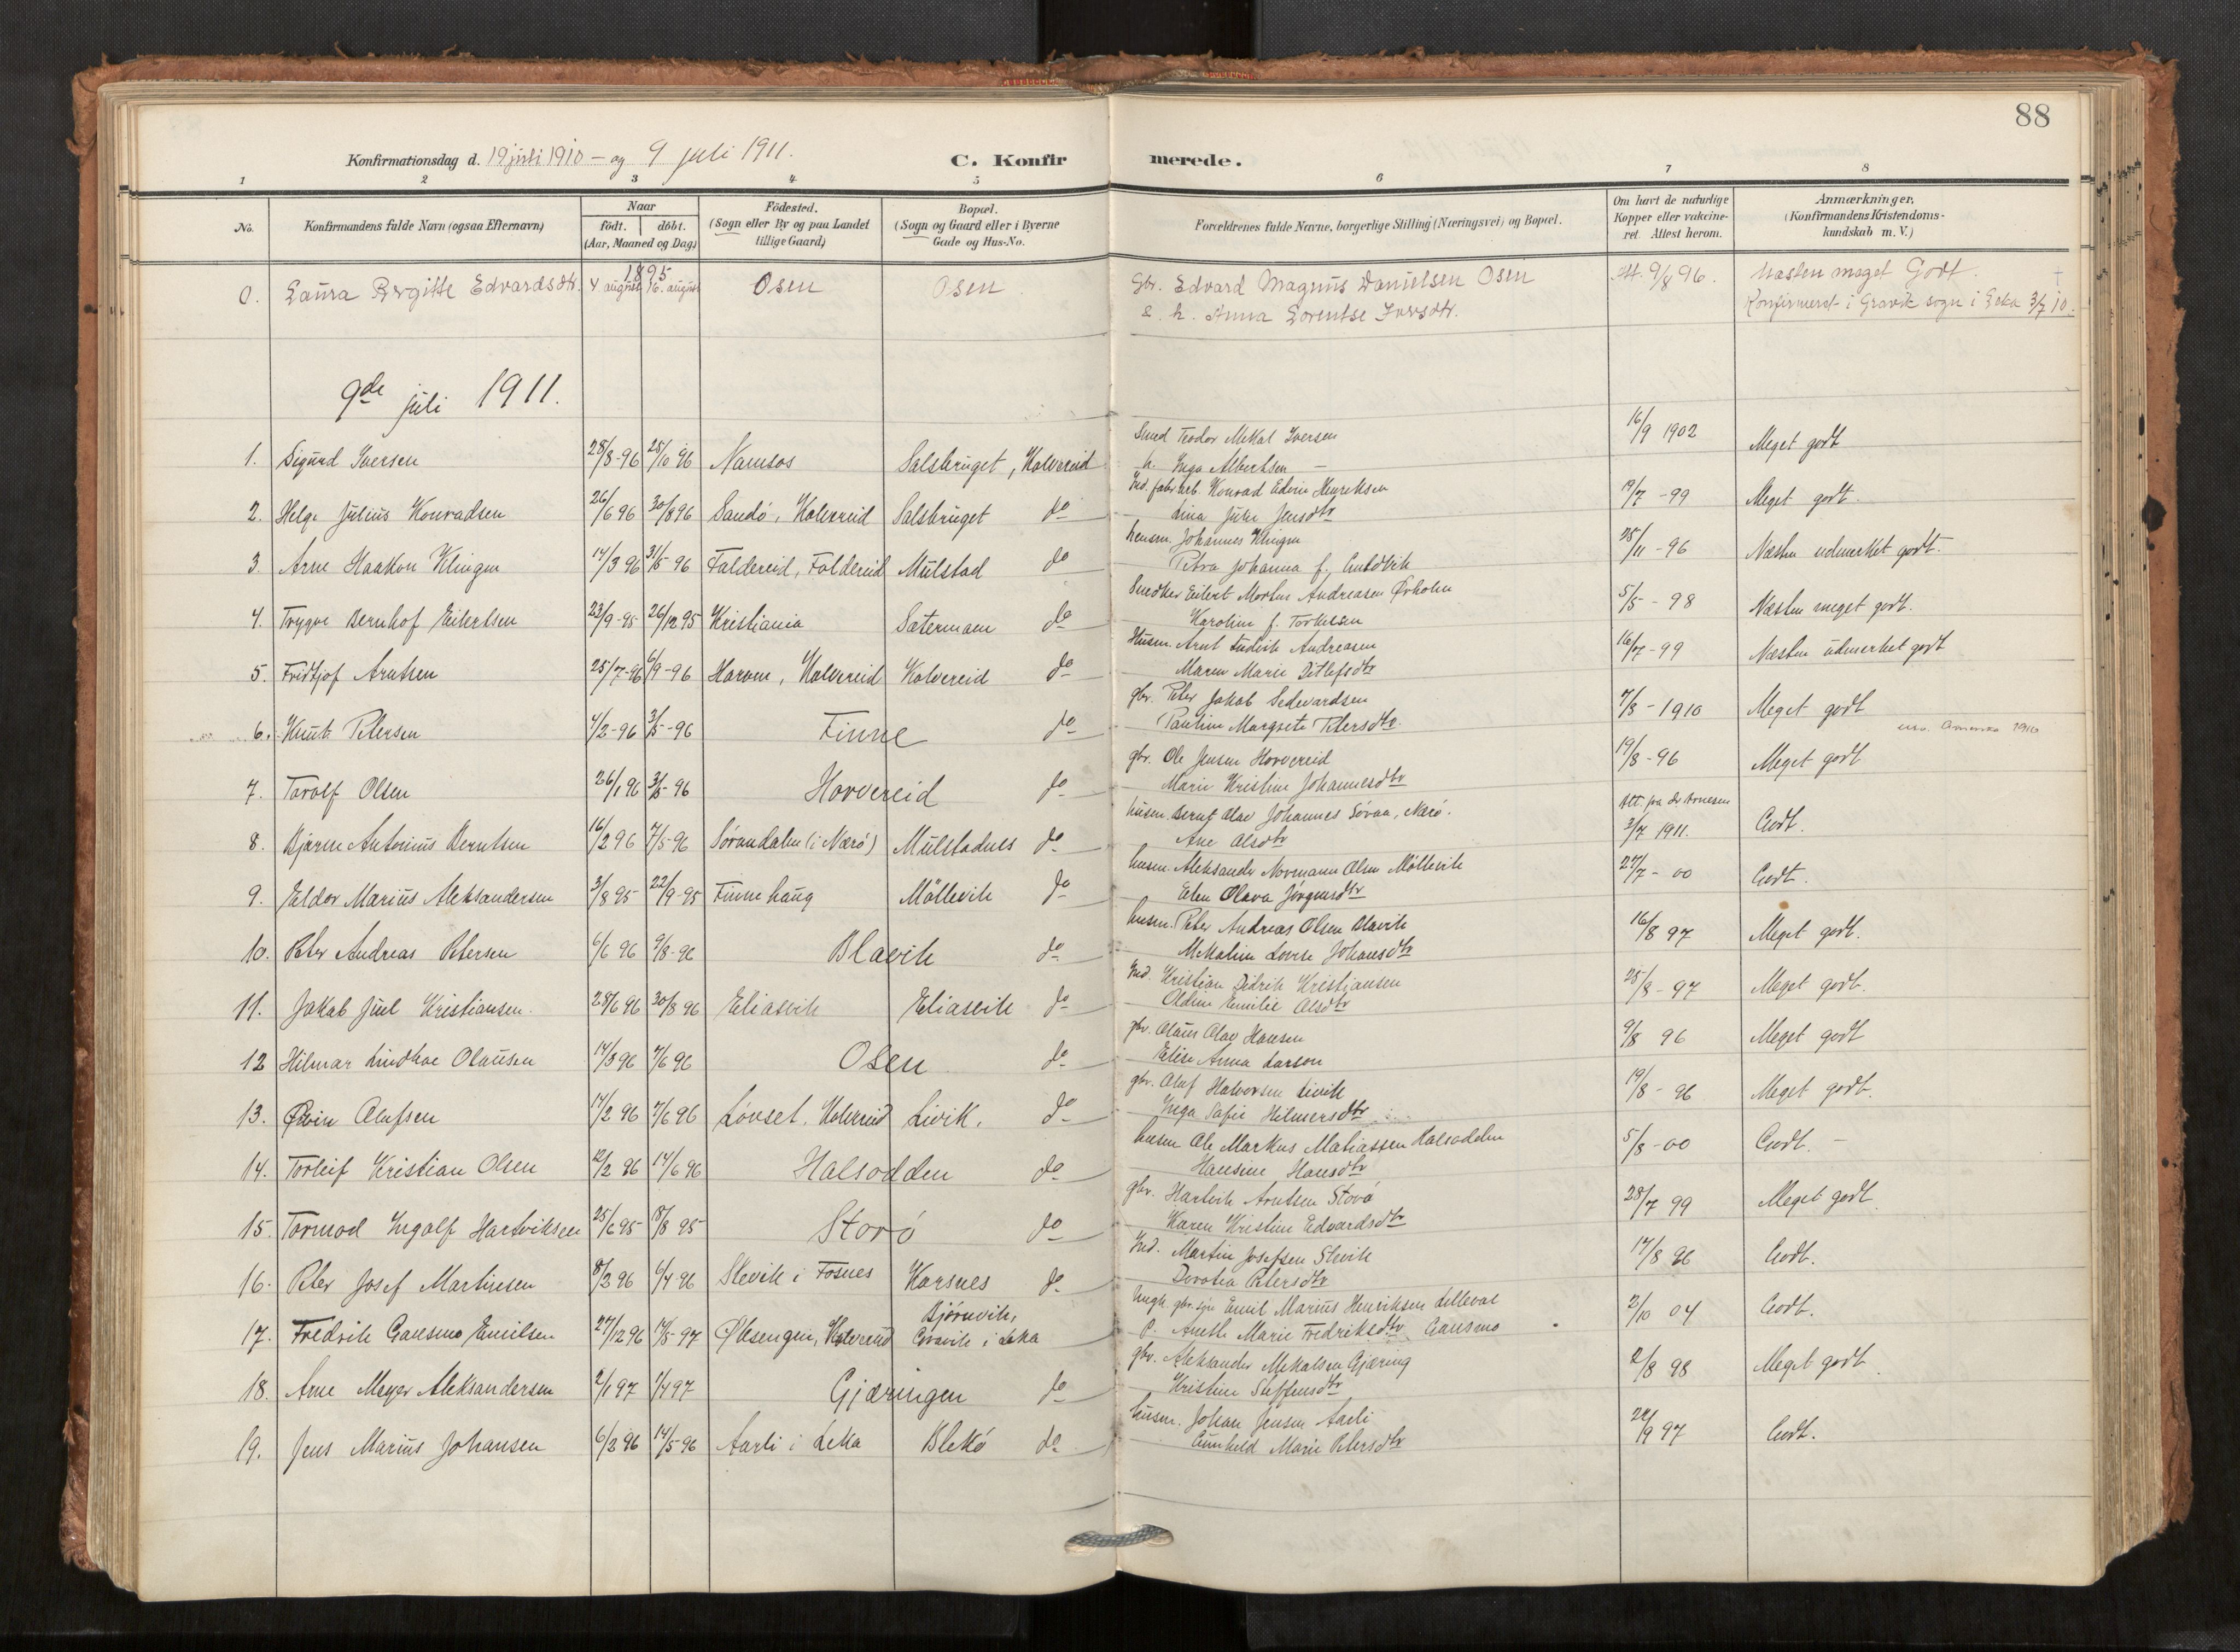 88
Konfirmationsdag d. 19 juli 1910 - og 9 juli 1911.
C. Konfirmerede.
1 2 3 4 5 6 7 8
No. Konfirmandens fulde Navn (ogsaa Efternavn) Naar født. døbt. (Aar, Maaned og Dag) Fødested. (Sogn eller By og paa Landet tillige Gaard) Bopæl. (Sogn og Gaard eller i Byerne Gade og Hus-No. Forældrenes fulde Navne, borgerlige Stilling (Næringsvei) og Bopæl. Om havt de naturlige Kopper eller vakcineret. Attest herom. Anmærkninger, (Konfirmandens Kristendomskundskab m. V.)
0. Laura Bergitte Edvardsdtr. 1895 4 august 16. august Osen Osen Gbr. Edvard Magnus Danielsen Osen Att. 9/8 96. Næsten meget Godt. †
& h. Anna Lorentse Iversdtr. Konfirmeret i Gravik sogn i Leka 3/7 10.
9de juli 1911.
1. Sigurd Iversen 28/8-96 25/10 96 Namsos Salsbruget, Kolvereid Smed Teodor Mikal Iversen 16/9 1902 Meget godt
h. Inga Albertsen -
2. Helge Julius Konradsen 26/6 96 30/8 96 Sandö, Kolvereid Salsbruget do Ind. fabr.arb. Konrad Edvin Henriksen 19/7 -99 Meget godt.
Lina Julie Jensdtr
3. Arne Haakon Klingen 14/3 96 31/5 96 Foldereid, Foldereid Mulstad do husm. Johannes Klingen 28/11 -96 Næsten udmerket godt.
Petra Johanna f.
4. Trygve Bernhof Eilertsen 23/9-95 26/12 95 Kristiania Sætermoen do Snedker Eilert Morten Andreasen Övholm 5/5 - 98 Næsten meget godt.
Karoline f. Torkilsen
5. Fridtjof Arntsen 25/7-96 6/9-96 Horven, Kolvereid Kolvereid do Husm. Arnt Ludvik Andreasen 16/7-99 Næsten udmerket godt
Maren Marie Ditlefsdtr
6. Knut Petersen 4/2-96 3/5-96 Finne do gbr. Peter Jakob Sedevardsen 7/8 - 1910 Meget godt
Pauline Margrete Petersdtr. Amerika 1910
7. Torolf Olsen 26/1 96 3/5-96 Horvereid do gbr. Ole Jensen Horvereid 19/8-96 Meget godt
Marie Kristine Johannesdtr
8. Bjarne Antonius Berntsen 16/2 96 7/5-96 Sörandalen (i Nærö) Mulstadnes do husm. Bernt Olav Johannes Sövaa, Nærö. Att. fra dr Arnesen 3/7 1911. Godt.
Ane Olsdtr
9. Eldor Marius Aleksandersen 3/8 95 22/9-95 Finne haug Möllevik do husm. Aleksander Normann Olsen Möllevik 27/7 - 00 Godt.
Elen Olava Jörgensdtr
10. Peter Andreas Petersen 6/6 96 9/8-96 Blaavik do husm. Peter Andreas Olsen Blaavik 16/8 97 Meget godt.
Mikaline Lovise Johansdtr
11. Jakob Juel Kristiansen 28/6 96 30/8 96 Eliasvik Eliasvik do Ind. Kristian Didrik Kristiansen 25/8-97 Meget godt.
Oldine Emilie Olsdtr
12 Hilmar Lindhoe Olausen 14/3 96 7/6 96 Osen do gbr. Olaus Olav Hansen 9/8 96 Meget godt
Elise Anna Larsen
13. Øivin Olufsen 14/2 96 7/6 96 Lövset, Kolvereid Livik. do gbr. Oluf Halvorsen Livik 19/8 - 96 Meget godt.
Inga Sofie Hilmersdtr
14. Torleif Kristian Olsen 12/2 96 14/6 96 Halsodden do husm Ole Markus Matiassen Halsodden 5/8-00 Godt. -
Hansine Hansdtr
15. Tormod Ingolf Hartviksen 25/6 95 18/8 95 Storö do gbr. Hartvik Arntsen Storö 28/7 99 Meget godt.
Karen Kristine Edvardsdtr
16. Peter Josef Martinsen 8/2 96 6/4 96 Slevik i Fosnes Karsnes do Ind. Martin Josefsen Slevik 17/8 96 Godt.
Dorotea Petersdtr
17. Fredrik Gansmo Emilsen 27/12 96 14/5-97 Öksengen, Kolvereid Björnvik, Gravik i Leka Ungk. gbr. sön Emil Marius Henriksen Lilleval 2/10 04 Godt.
P. Aneth Marie Fredriksdtr Gansmo
18. Arne Meyer Aleksandersen 2/1 97 1/4 97 Gjæringen do gbr. Aleksander Mikalsen Gjæring 2/8 98 Meget godt.
Kristine Steffensdtr
19. Jens Marius Johansen 6/2 96 14/5-96 Aarli i Leka Blekö do husm. Johan Jensen Aarli 24/9 97 Godt.
Gunhild Marie Petersdtr